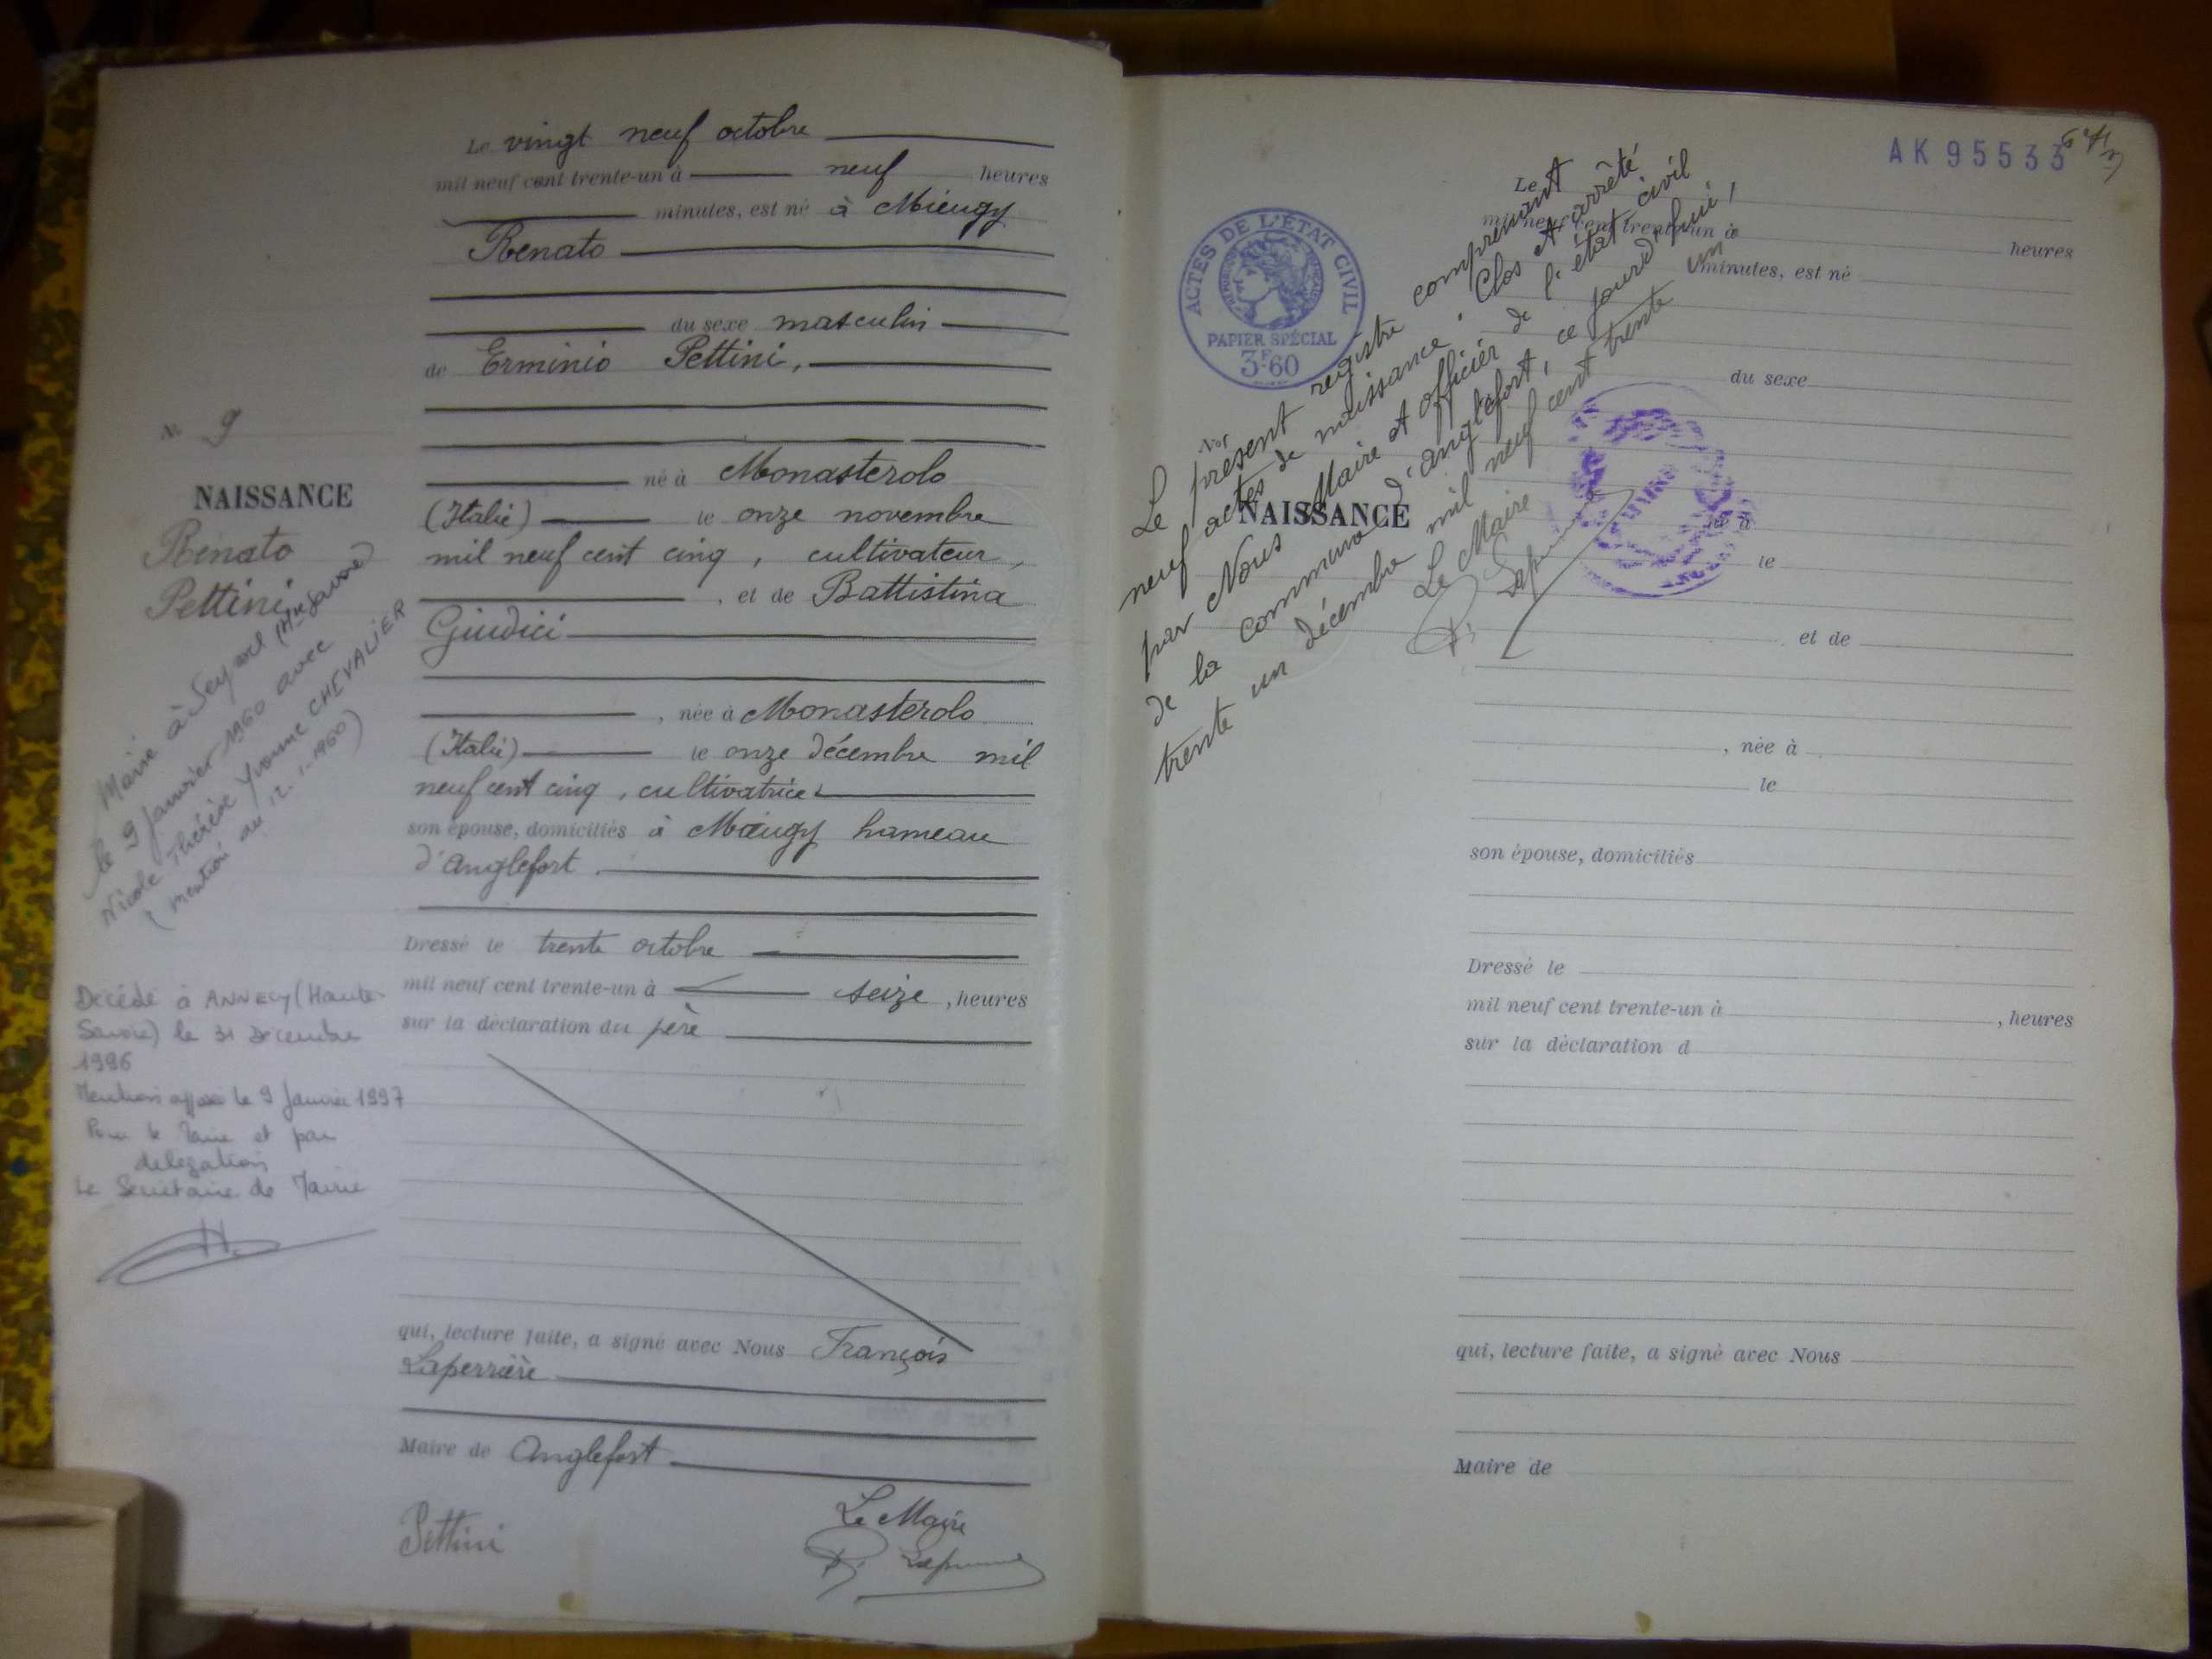 Le vingt neuf octobre
mil neuf cent trente-un à neuf heures
minutes, est né à Mieugy
Renato
du sexe masculin
de Erminio Pettini,
né à Monasterolo
(Italie) le onze novembre
mil neuf cent cinq, cultivateur,
, et de Battistina
Giudici
, née à Monasterolo
(Italie) le onze décembre mil
neuf cent cinq, cultivatrice
son épouse, domiciliés à Mieugy hameau
d'Anglefort.
Dressé le trente octobre
mil neuf cent trente-un à seize, heures
sur la déclaration du père
qui, lecture faite, a signé avec Nous François
Laperrière
Maire de Anglefort
Pettini
Le Maire
F. Laperrière
N° 9
NAISSANCE
Renato
Pettini
Marié à Seyssel (Hte Savoie)
le 9 Janvier 1960 avec
Nicole Thérèse Yvonne CHEVALIER
(mention du 12.1.1960)
Décédé à ANNECY (Haute-
Savoie) le 31 décembre
1996
Mention apposée le 9 Janvier 1997
Pour le Maire et par
délégation
Le Secrétaire de Mairie
AK 95533
ACTES DE L'ÉTAT CIVIL
RÉPUBLIQUE FRANÇAISE
PAPIER SPÉCIAL
3F60
Le présent registre comprenant
neuf actes de naissance. Clos et arrêté
par Nous Maire et officier de l'état civil
de la commune d'Anglefort, ce jourd'hui,
trente un décembre mil neuf cent trente
un
Le Maire
F. Laperrière
MAIRIE
N°
NAISSANCE
Le
mil neuf cent trente-un à heures
minutes, est né
du sexe
né à
le
et de
, née à
le
son épouse, domiciliés
Dressé le
mil neuf cent trente-un à , heures
sur la déclaration d
qui, lecture faite, a signé avec Nous
Maire de